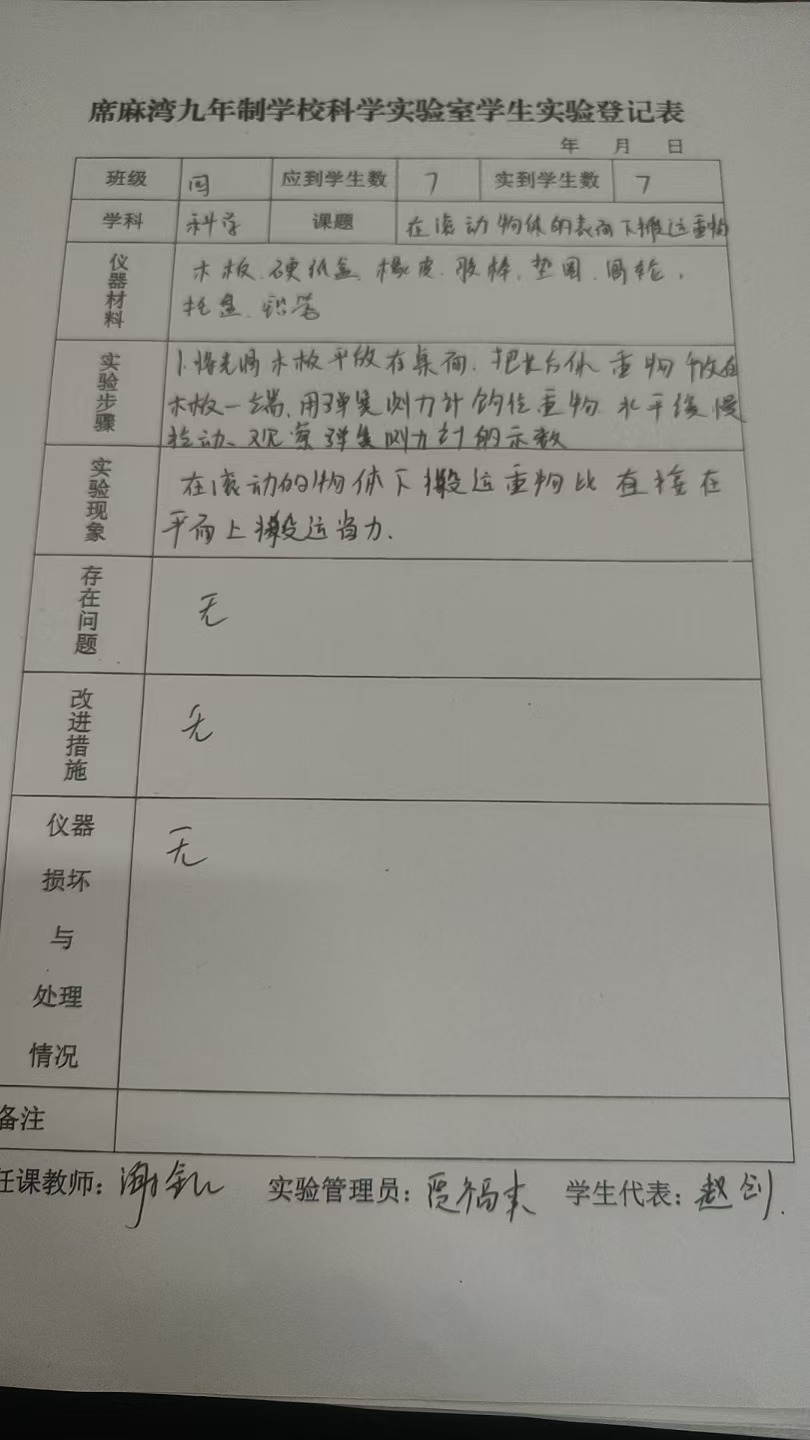 席麻湾九年制学校科学实验室学生实验登记表
年 月 日
班级 四 应到学生数 7 实到学生数 7
学科 科学 课题 在滚动物体的表面下搬运重物
仪器材料 木板、硬纸盒、橡皮、胶棒、垫圈、圆轮、
托盘、铅笔
实验步骤 1、将光滑木板平放在桌面、把长方体重物放在
木板一端、用弹簧测力计钩住重物水平缓慢
拉动、观察弹簧测力计的示数
实验现象 在滚动的物体下搬运重物比直接在
平面上搬运省力.
存在问题 无
改进措施 无
仪器损坏与处理情况 无
备注
任课教师: 实验管理员: 学生代表: 赵剑